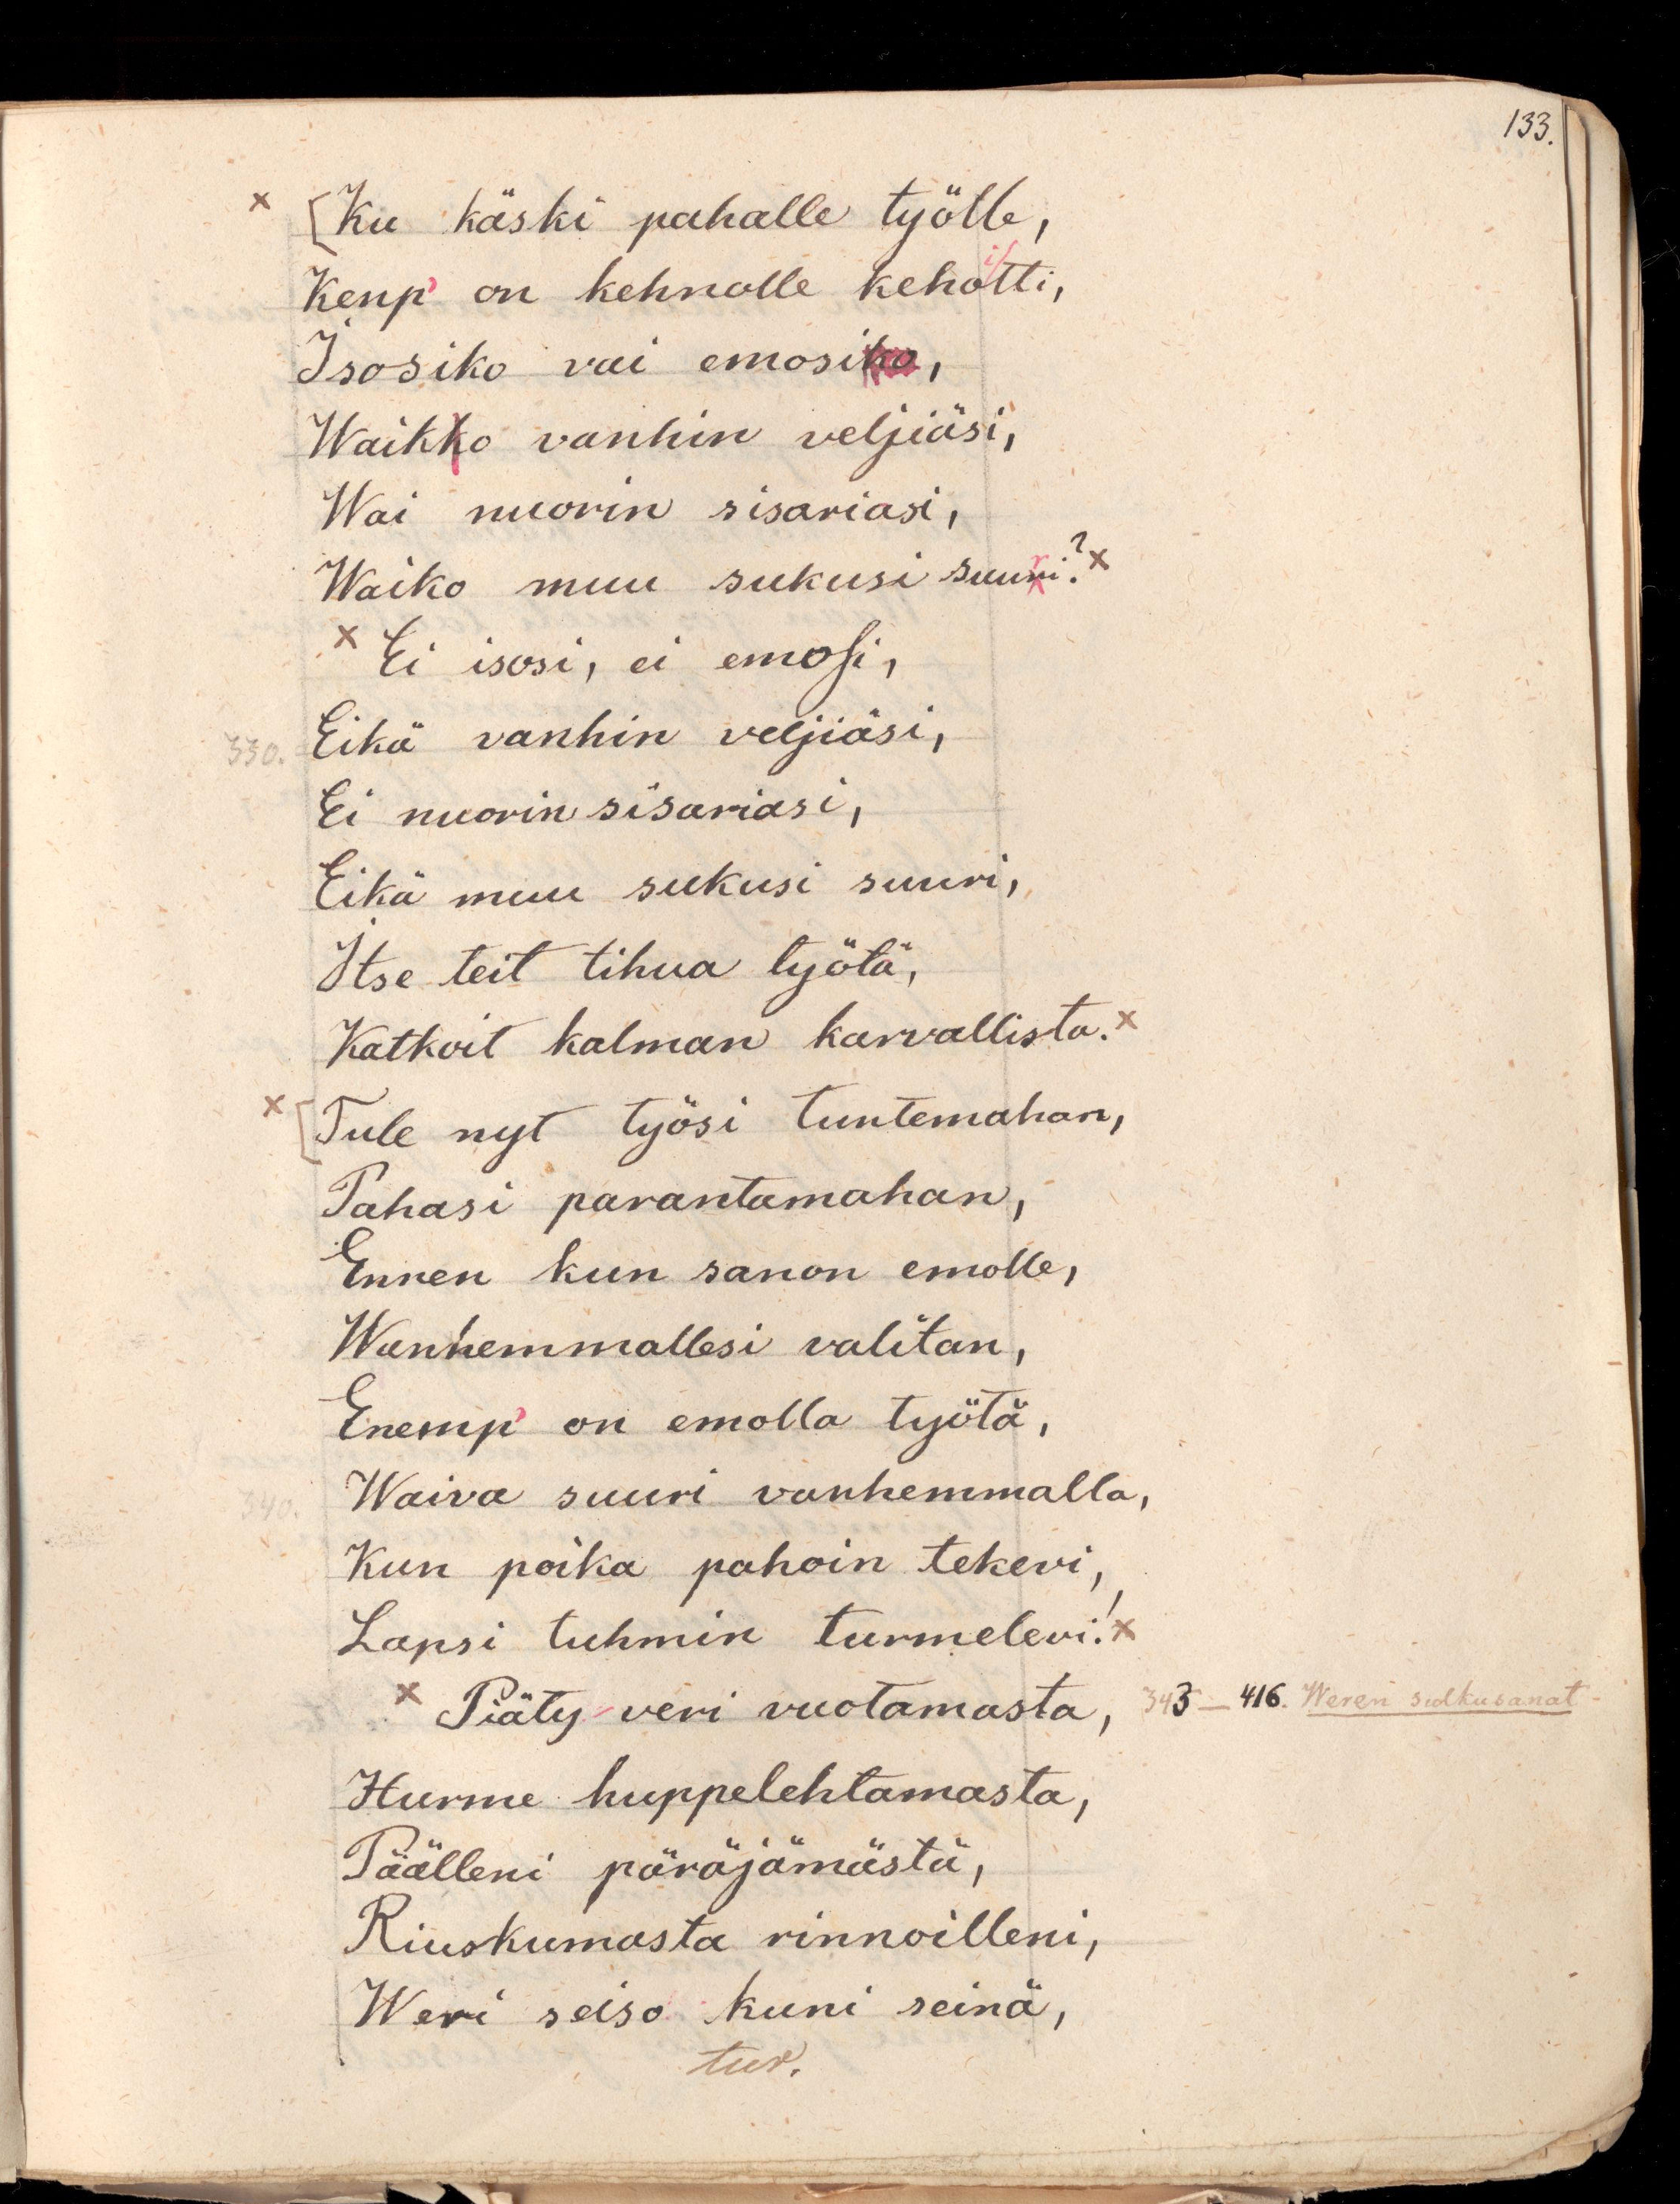 133.
× [Ku käski pahalle työlle,
Kenp' on kehnolle kehoitti,
Isosiko vai emosiko,
Waikko vanhin veljiäsi,
Wai nuorin sisariasi,
Waiko muu sukusi suuri? ×
× Ei isosi, ei emosi,
330. Eikä vanhin veljiäsi,
Ei nuorin sisariasi,
Eikä muu sukusi suuri,
Itse teit tihua työtä,
Katkoit kalman karvallista. ×
× [Tule nyt työsi tuntemahan,
Pahasi parantamahan,
Ennen kun sanon emolle,
Wanhemmallesi valitan,
Enemp' on emolla työtä,
340. Waiva suuri vanhemmalla,
Kun poika pahoin tekevi,
Lapsi tuhmin turmelevi! ×
× Piäty veri vuotamasta, 343 — 416. Weren sulkusanat
Hurme huppelehtamasta,
Päälleni päräjämästä,
Riuskumasta rinnoilleni,
Weri seiso kuni seinä,